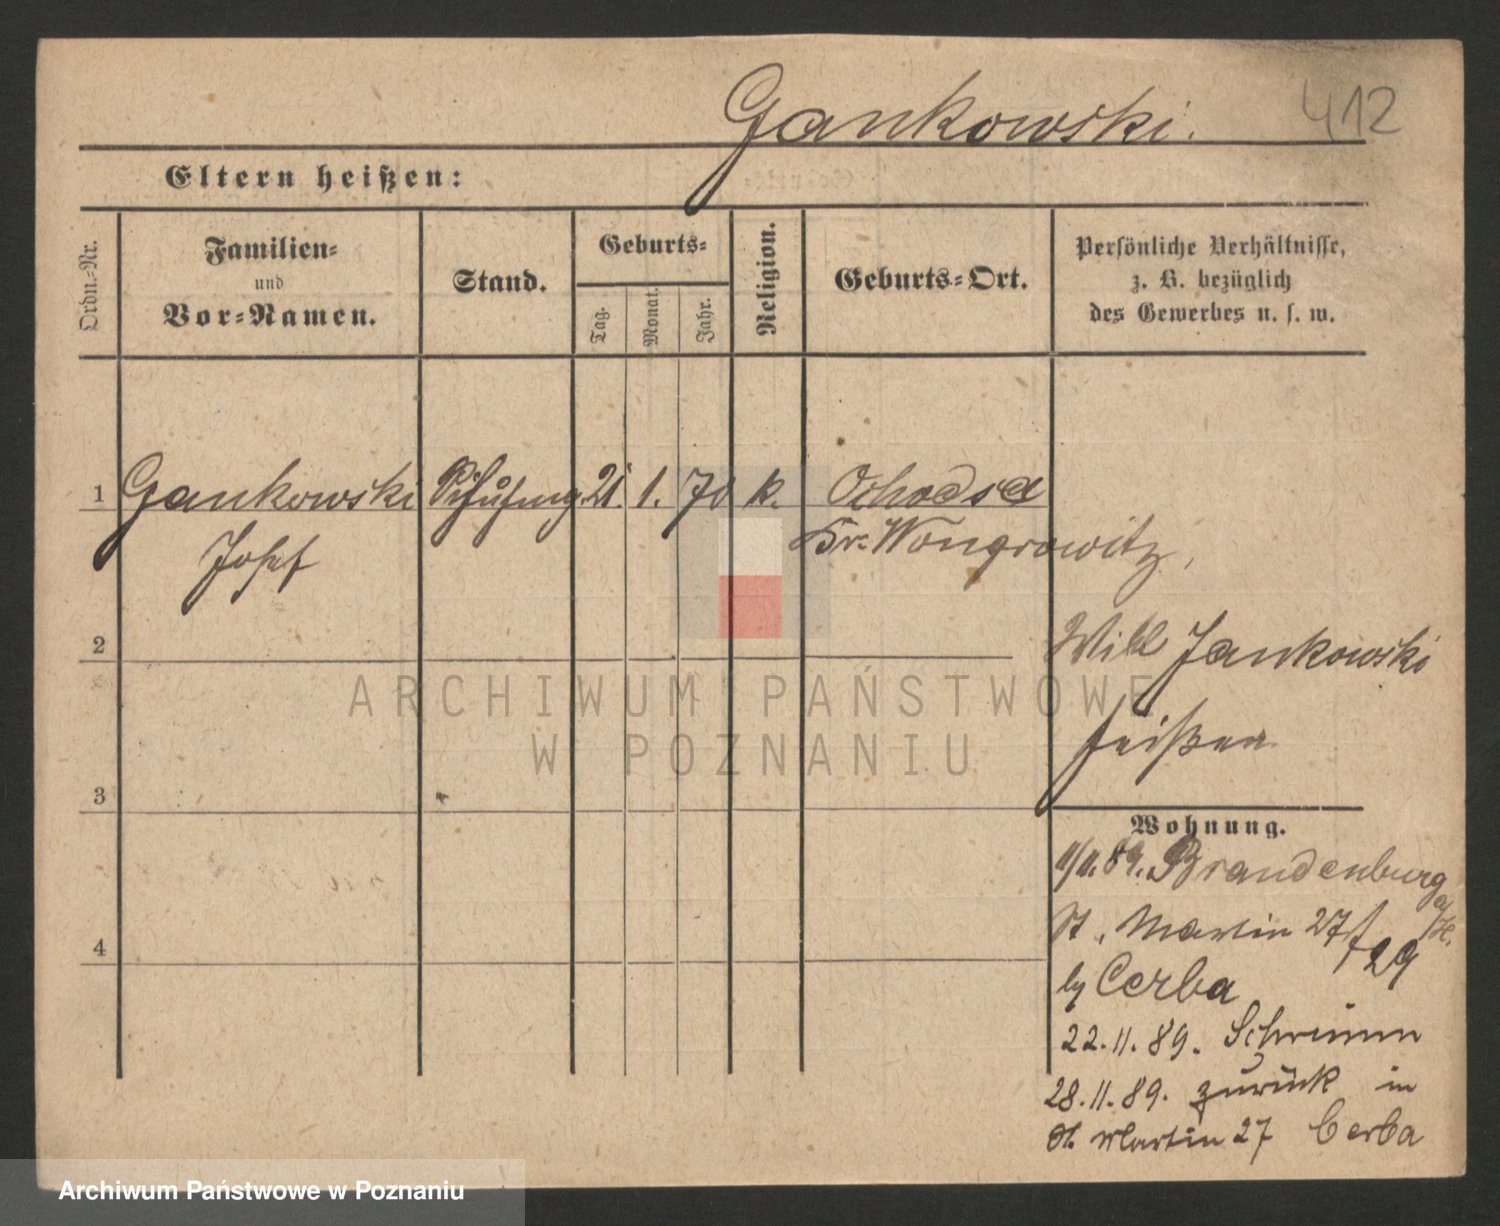 Gankowski. 412
Eltern heißen:
Ordn.-Nr.
Familien-
und
Vor-Namen.
Stand.
Geburts-
Tag.
Monat.
Jahr.
Religion.
Geburts-Ort.
Persönliche Verhältnisse,
z. B. bezüglich
des Gewerbes u. s. w.
1 Gankowski 21. 1. 70 k. Ochodza
Josef Kr. Wongrowitz,
2
Will Jankowski
heißen
3
Wohnung.
1/11. 89. Brandenburg
a/H.
St. Martin 27/29
by Cerba
4
22.11.89. Schrimm
28.11.89. zurück in
St. Martin 27 Cerba
ARCHIWUM PAŃSTWOWE
W POZNANIU
Archiwum Państwowe w Poznaniu